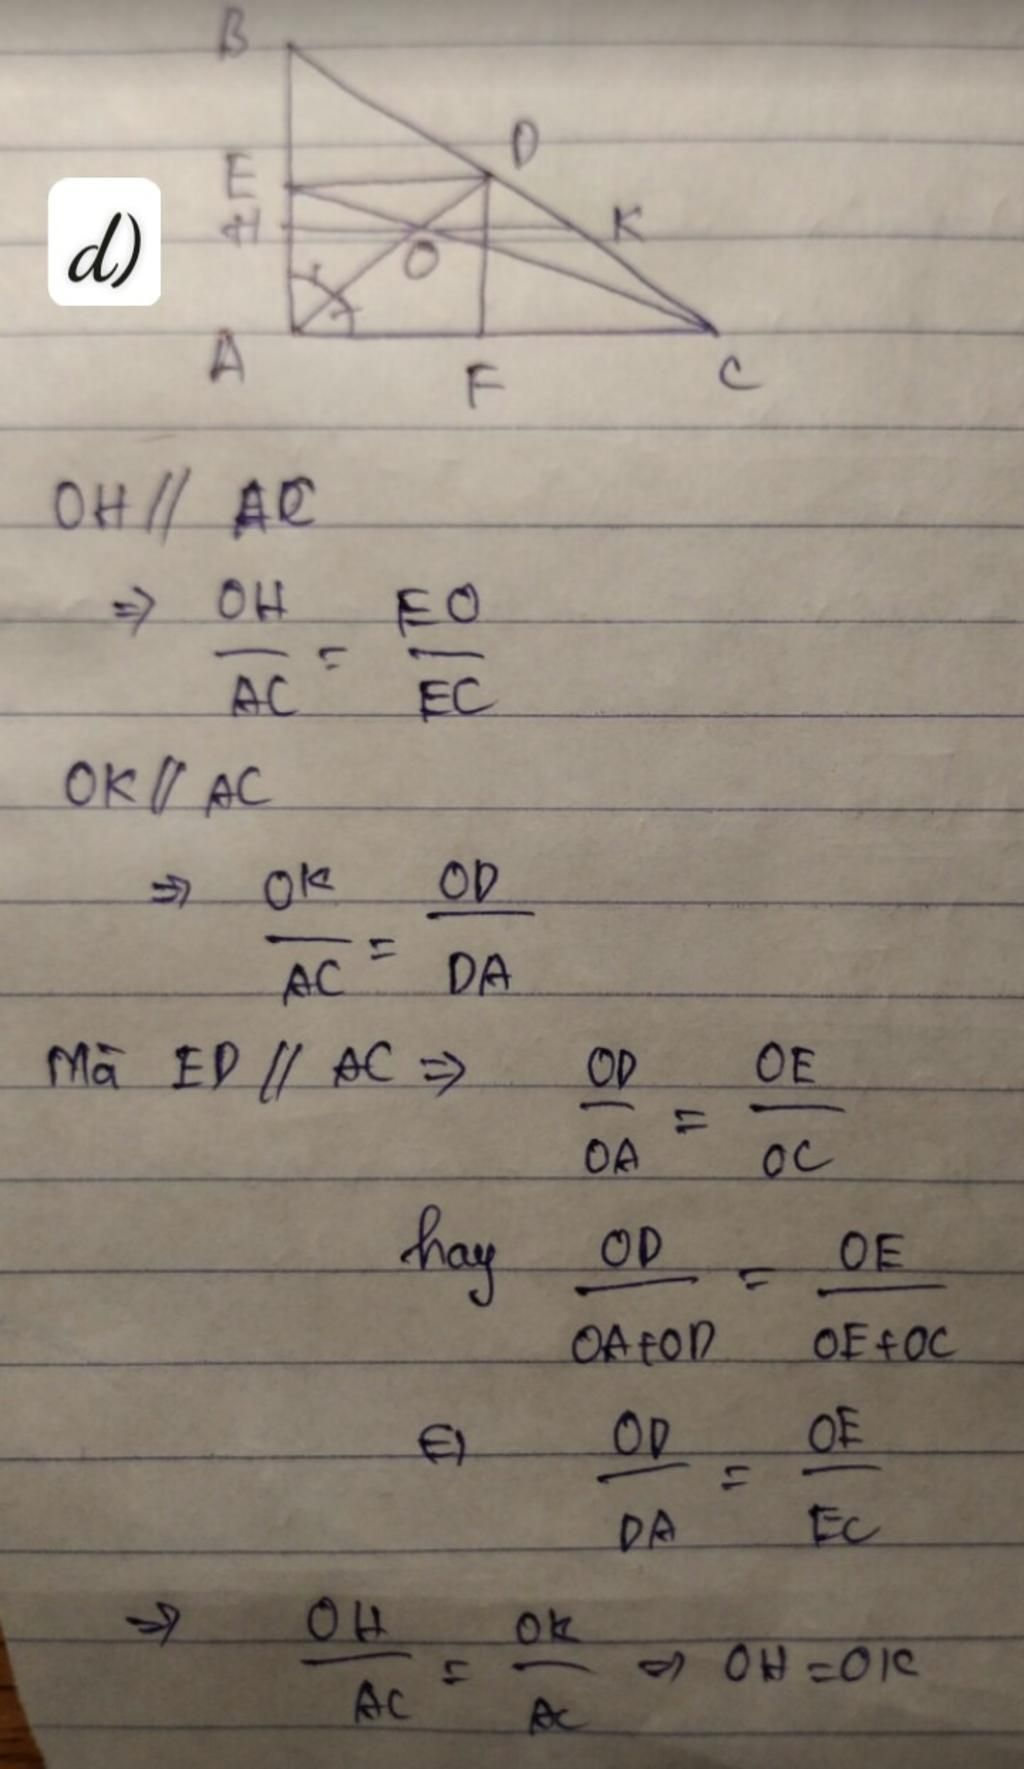 B
D
E
d)
H
K
O
A
F
C
OH // AC
=> OH/AC = EO/EC
OK // AC
=> OK/AC = OD/DA
Mà ED // AC => OD/OA = OE/OC
hay OD/OA+OD = OE/OE+OC
<=> OD/DA = OE/EC
=> OH/AC = OK/AC => OH = OK